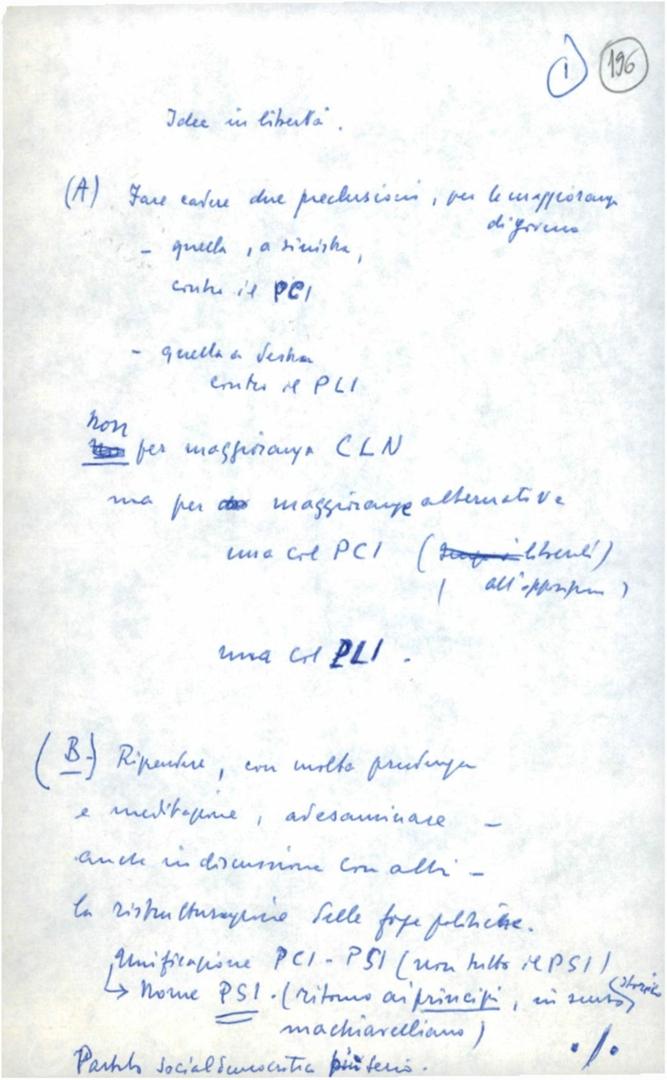 1 196
Idee in libertà.
(A) Fare cadere due preclusioni, per le maggioranze
di governo
- quella, a sinistra,
contro il PCI
- quella a destra
contro il PLI
non
per maggioranza CLN
ma per maggioranze alternative
una col PCI ( liberali)
( all'opposizione )
una col PLI.
(B) Riprendere, con molta prudenza
e meditazione, ad esaminare -
anche in discussione con altri -
la ristrutturazione delle forze politiche.
Unificazione PCI - PSI (non tutto il PSI)
→ Nome PSI. (ritorno ai principi, in senso storico
machiavelliano)
Partito socialdemocratico più serio.
./.